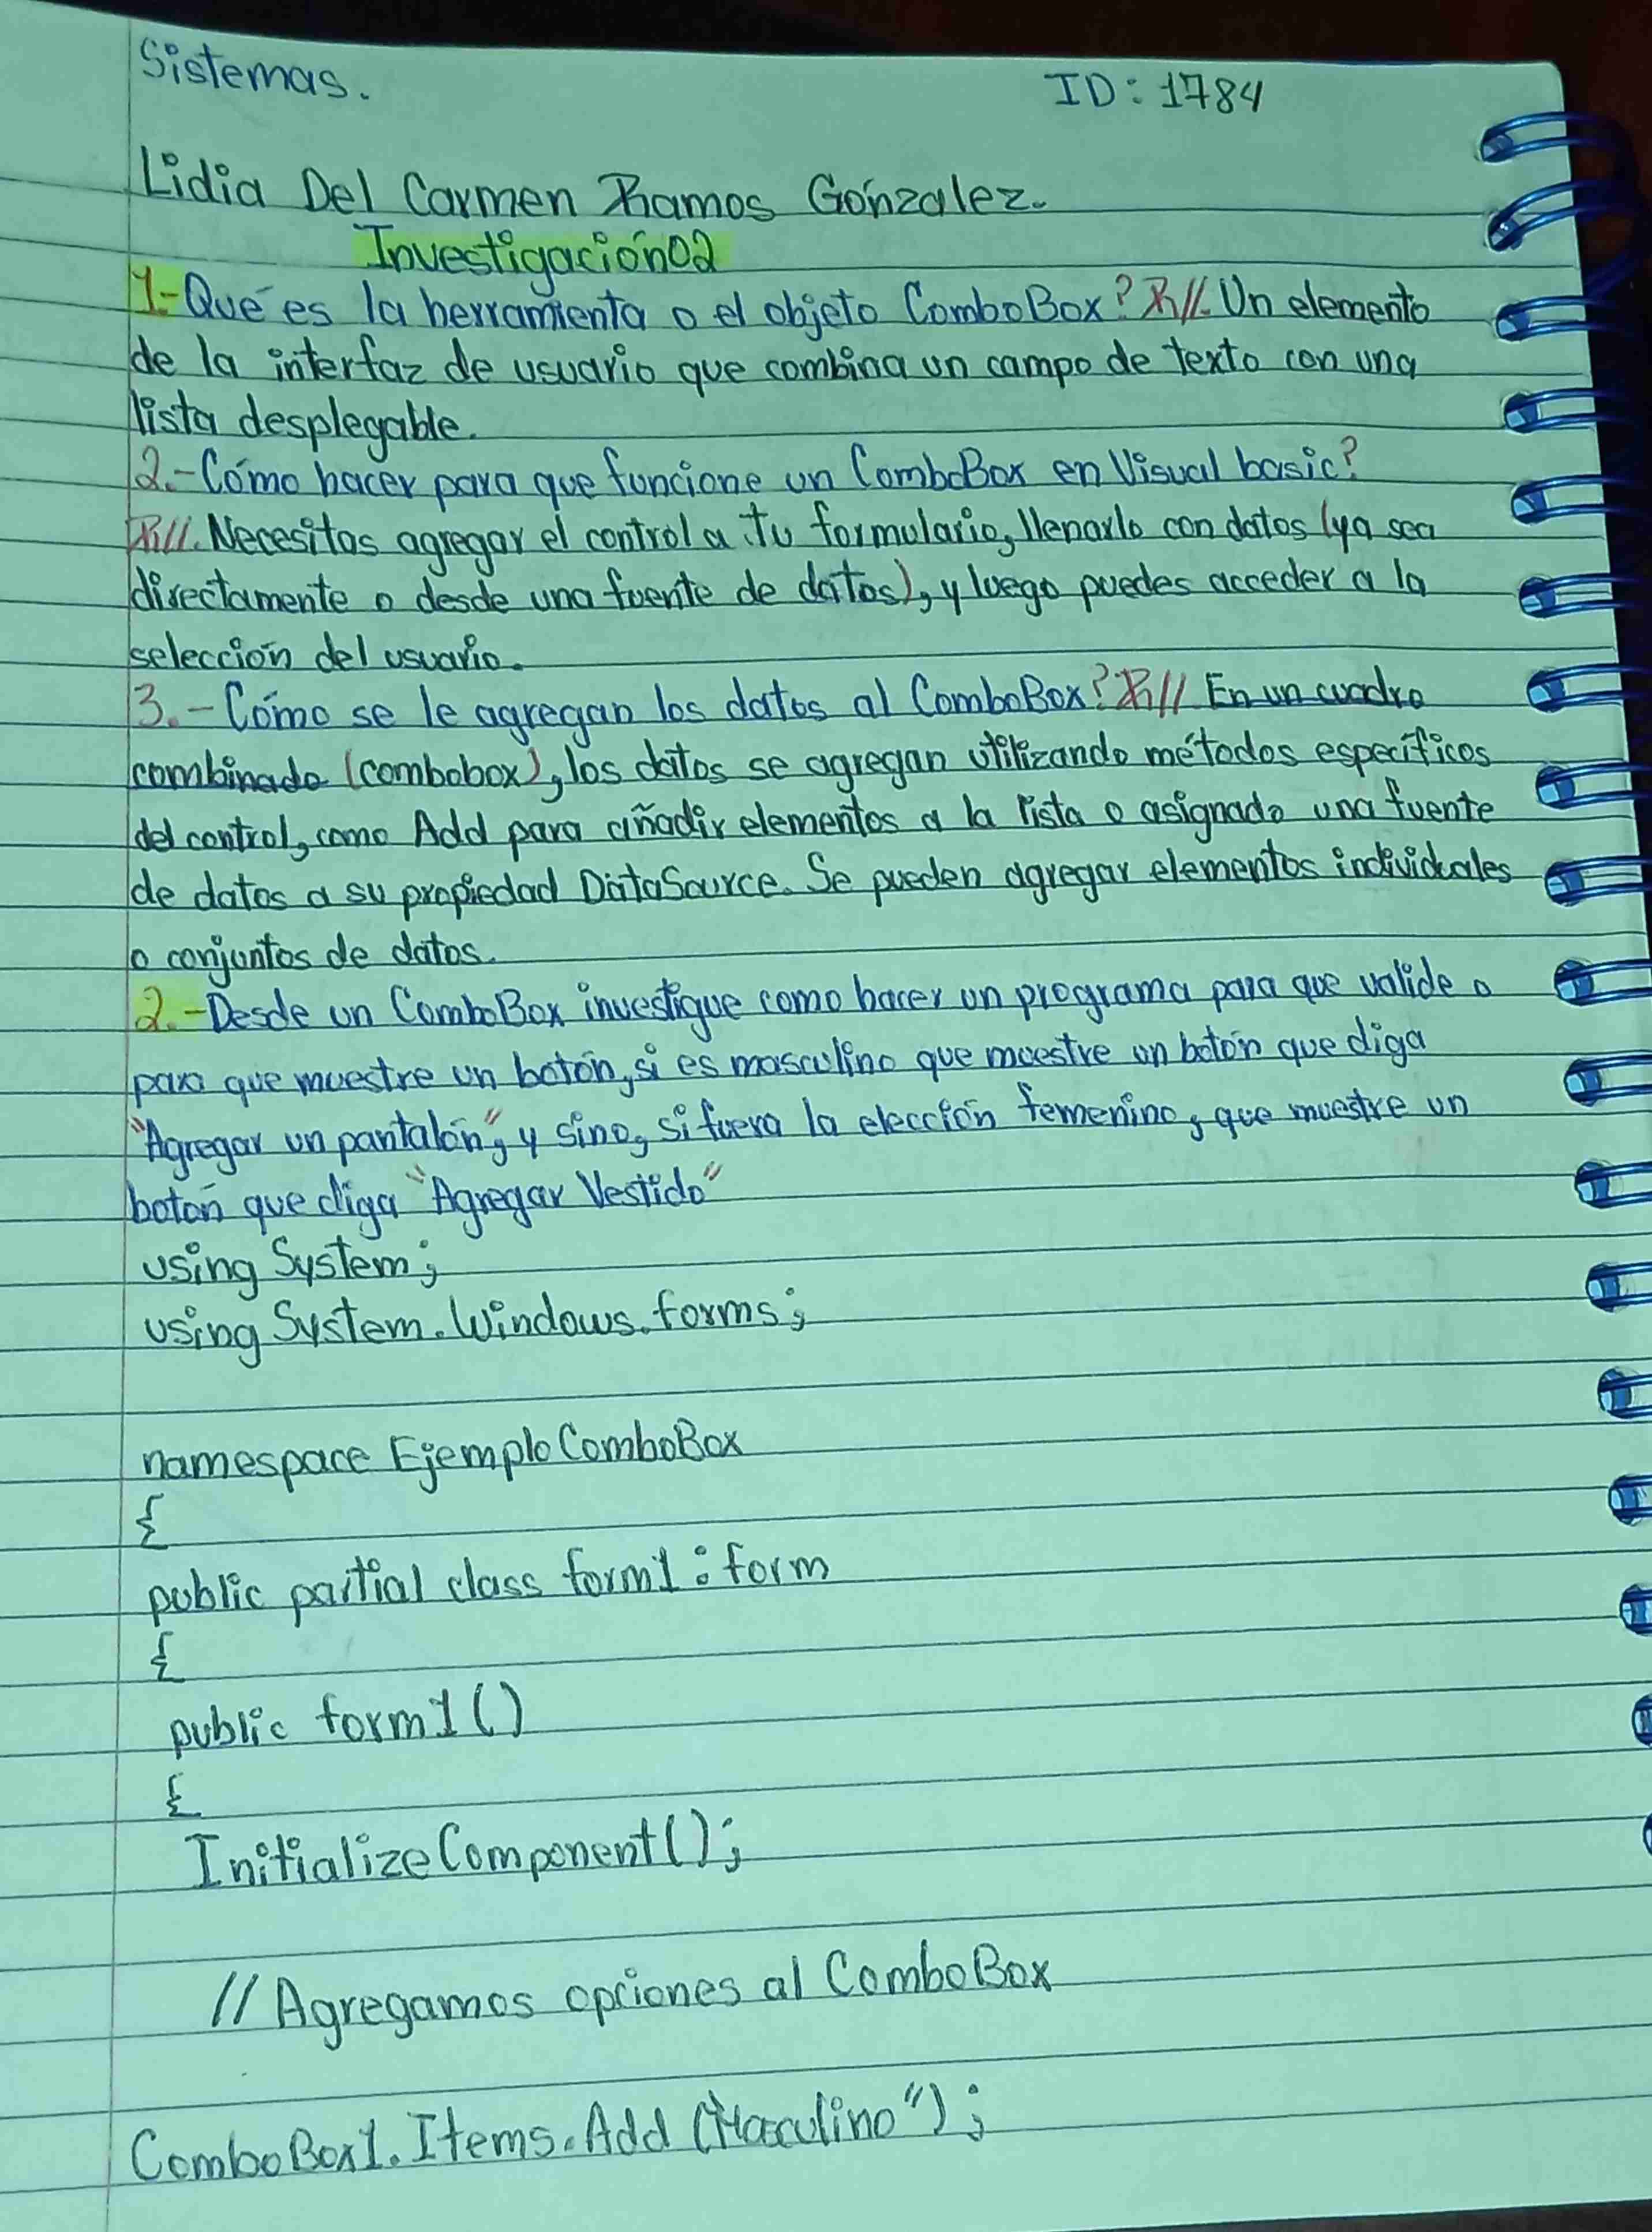 Sistemas.
ID: 1784
Lidia Del Carmen Ramos Gónzalez.
Investigación02
1-Qué es la herramienta o el objeto ComboBox? R//. Un elemento
de la interfaz de usuario que combina un campo de texto con una
lista desplegable.
2.-Cómo hacer para que funcione un ComboBox en Visual basic?
R//. Necesitas agregar el control a tu formulario, llenarlo con datos (ya sea
directamente o desde una fuente de datos), y luego puedes acceder a la
selección del usuario.
3.-Cómo se le agregan los datos al ComboBox? R// En un cuadro
combinado (combobox), los datos se agregan utilizando métodos específicos
del control, como Add para añadir elementos a la lista o asignado una fuente
de datos a su propiedad DataSource. Se pueden agregar elementos individuales
o conjuntos de datos.
2.-Desde un ComboBox investigue como hacer un programa para que valide o
para que muestre un botón, si es masculino que muestre un botón que diga
"Agregar un pantalón", y sino, si fuera la elección femenino, que muestre un
botón que diga "Agregar Vestido"
using System;
using System.Windows.forms;
namespace EjemploComboBox
{
public partial class form1: form
{
public form1()
{
InitializeComponent();
//Agregamos opciones al ComboBox
ComboBox1.Items.Add("Masculino");